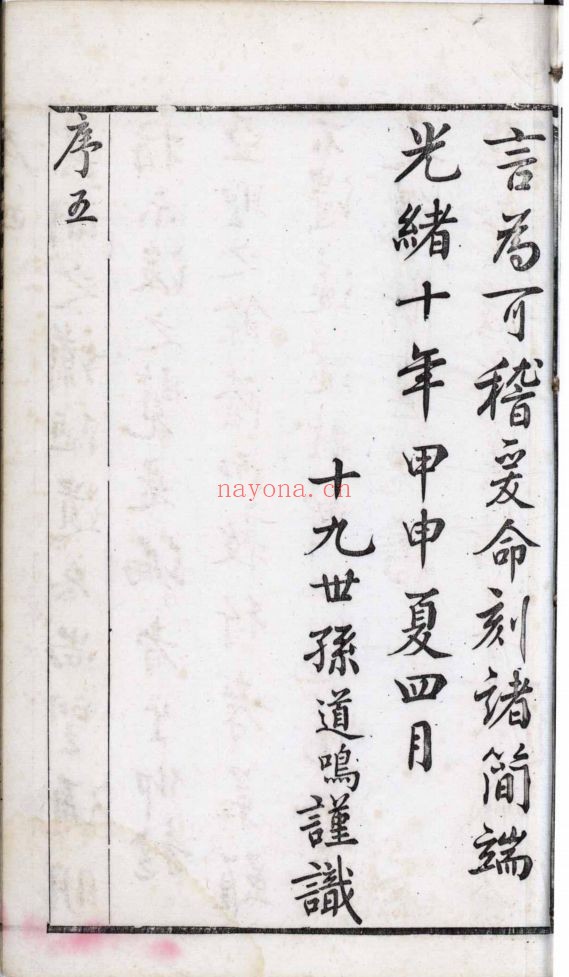 言為可稽爰命刻諸簡端
光緒十年甲申夏四月
十九世孫道鳴謹識
序五
nayona.cn